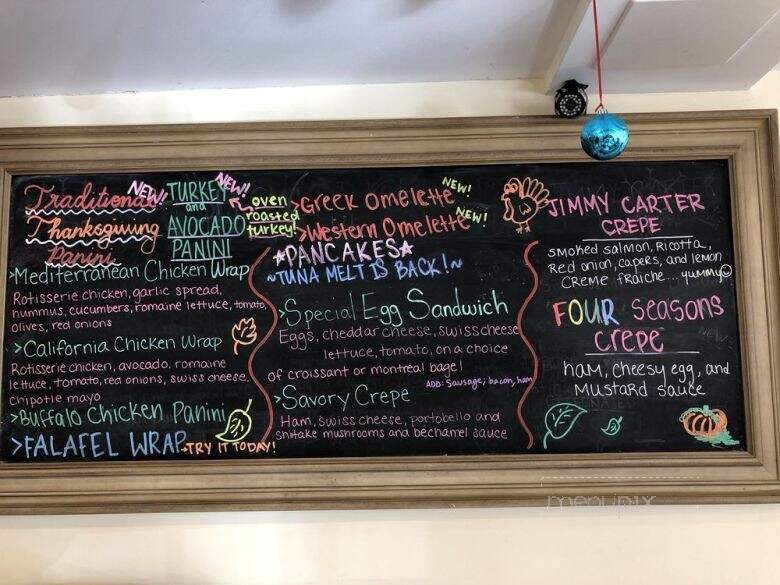 Traditional NEW!
Thanksgiving
Panini
NEW!
TURKEY
and
AVOCADO
PANINI
oven
roasted
turkey!
>Mediterranean Chicken Wrap
Rotisserie chicken, garlic spread,
hummus, cucumbers, romaine lettuce, tomato,
olives, red onions
>California Chicken Wrap
Rotisserie chicken, avocado, romaine
lettuce, tomato, red onions, swiss cheese,
chipotle mayo
>Buffalo Chicken Panini
>FALAFEL WRAP -TRY IT TODAY!
>Greek Omelette NEW!
>Western Omelette NEW!
*PANCAKES*
~TUNA MELT IS BACK!~
>Special Egg Sandwich
Eggs, cheddar cheese, swiss cheese
lettuce, tomato, on a choice
of croissant or montreal bagel
ADD: Sausage, bacon, ham
>Savory Crepe
Ham, swiss cheese, portobello and
shiitake mushrooms and béchamel sauce
JIMMY CARTER
CREPE
smoked salmon, Ricotta,
Red onion, capers, and lemon
CREME fraiche... yummy
FOUR Seasons
Crepe
ham, cheesy egg, and
Mustard sauce
menupix